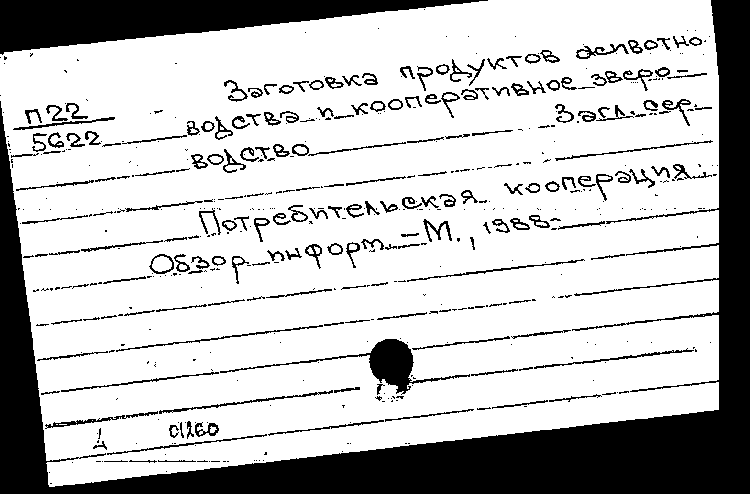 Заготовка продуктов животно
п22
5622
водства и кооперативное зверо-
водство
Загл. сер.
Потребительская кооперация:
Обзор. информ. - М., 1988-
4